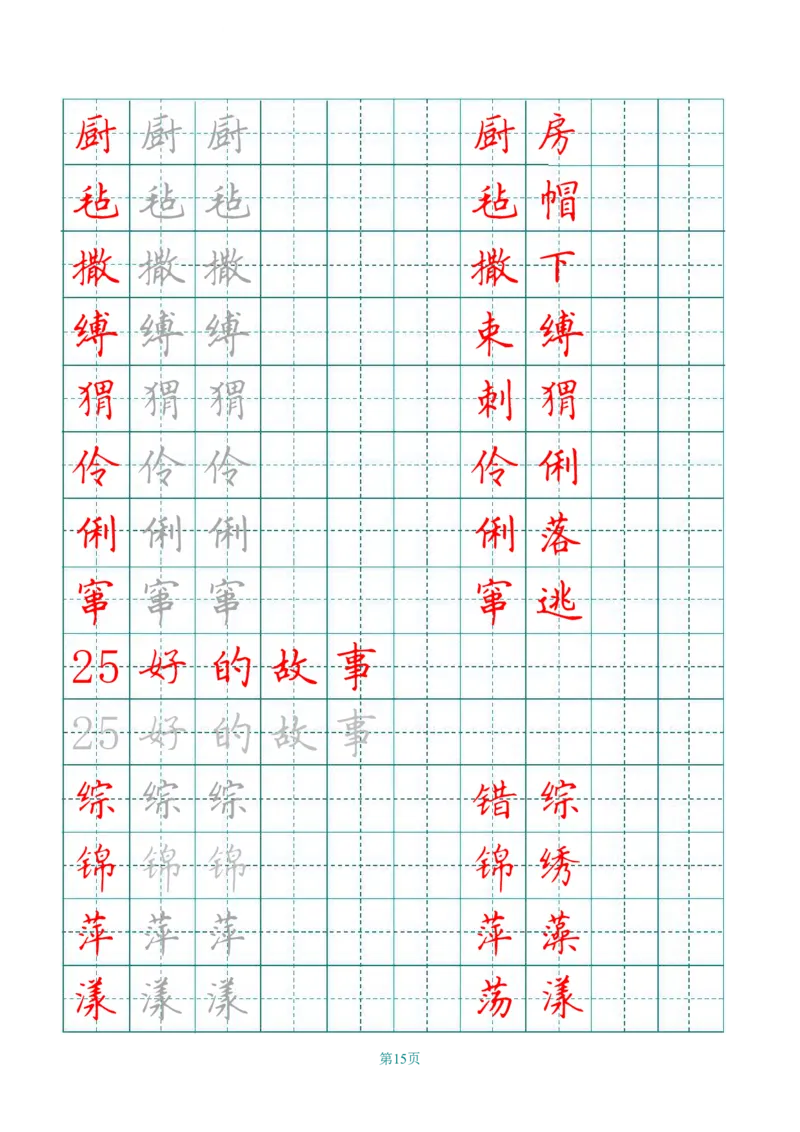 厨厨厨 厨房
毡毡毡 毡帽
撒撒撒 撒下
缚缚缚 束缚
猬猬猬 刺猬
伶伶伶 伶俐
俐俐俐 俐落
窜窜窜 窜逃
25好的故事
25好的故事
综综综 错综
锦锦锦 锦绣
萍萍萍 萍藻
漾漾漾 荡漾
第15页